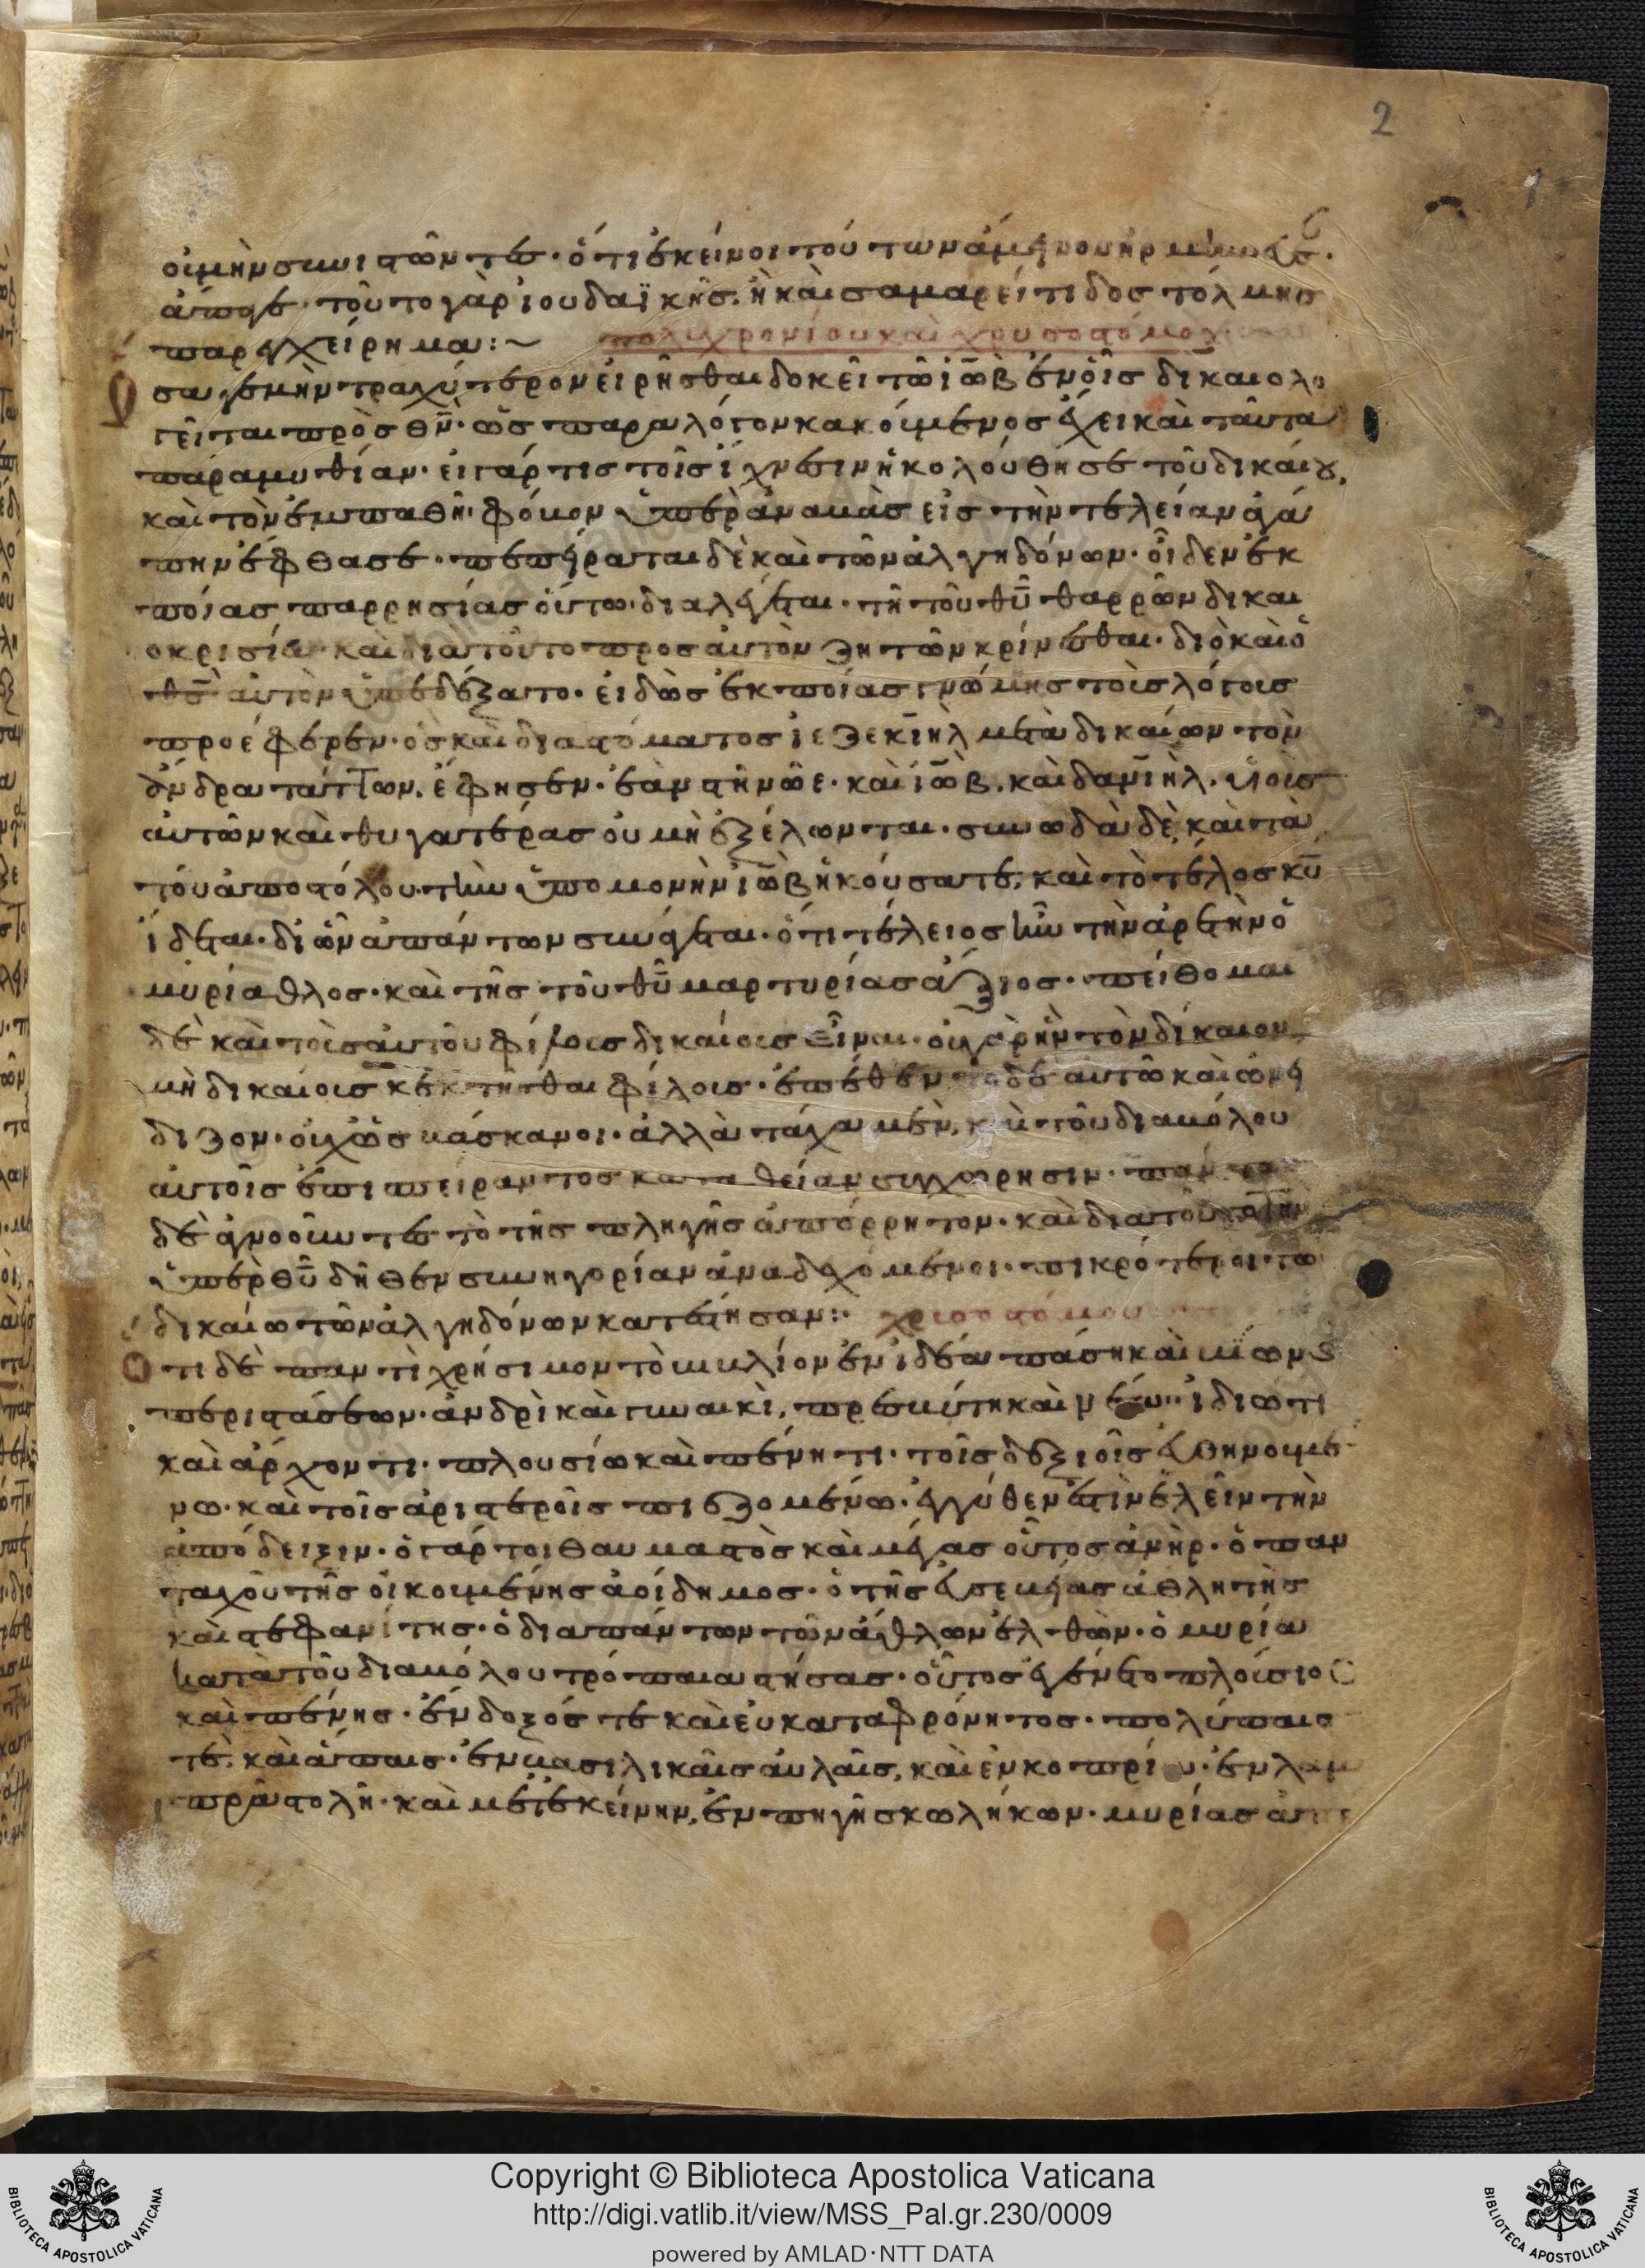 2
οὐ μὴν συνιῶντες· ὅτι ἐκεῖνοι τούτων ἀμ
ἄπαγε· τοῦτο γὰρ ϊουδαϊκῆς, ἢ καὶ σαμαρείτιδος τόλμης
παρεγχείρημα:~ πολυχρονίου καὶ χρυσοστόμου
σαφὲς μὲν τραχύτερον εἰρῆσθαι δοκεῖ τῶ ἰὼβ ἐν οἷς δικαιολο
γεῖται πρὸς θν̄· ὡς παρὰ λόγον κακούμενος ἔχει καὶ ταῦτα
παραμυθίαν· εἰ γάρ τις τοῖς ἴχνεσιν ἠκολούθησε τοῦ δικαίου,
καὶ τὸν ἐμπαθῆ φόβον ὑπεραναβὰς εἰς τὴν τελείαν ἀγά
πην ἔφθασε· πεπείραται δὲ καὶ τῶν ἀλγηδόνων· οἶδεν ἐκ
ποίας παρρησίας οὕτω διαλέγεται· τῆ τοῦ θῡ θαρρῶν δικαι
οκρισία· καὶ διατοῦτο προς αὐτὸν ζητῶν κρίνεσθαι· διὸ καὶ ὁ
θς̄ αὐτὸν ὑπεδέξατο· εἰδὼς ἐκ ποίας γνώμης τοὺς λόγους
προέφερεν· ὃς καὶ διαστόματος ἰεζεκιὴλ μετὰ δικαίων τὸν
ἄνδρα τάττων, ἔφησεν· ἐὰν στῆ νῶε· καὶ ἰὼβ, καὶ δανιὴλ, υἱοὺς
αὐτῶν καὶ θυγατέρας οὐ μὴ ἐξέλωνται· συνωδὰ δὲ καὶ τὰ
τοῦ ἀποστόλου· τὴν ὑπομονὴν ἰὼβ ἠκούσατε, καὶ τὸ τέλος κῡ
ἴδεται· δι ὧν ἁπάντων συνάγεται· ὅτι τέλειος ἦν τὴν ἀρετὴν ὁ
μυρίαθλος· καὶ τῆς τοῦ θῡ μαρτυρίας ἄξιος· πείθομαι
δὲ καὶ τοὺς αὐτοῦ φίλους δικαίους εἶναι· οὐ γὰρ ἦν τὸν δίκαιον,
μὴ δικαίους κεκτῆσθαι φίλους· ἐπέθεντο δὲ αὐτῶ καὶ ὠνεί
διζον· οὐχ ὡς βάσκανοι· ἀλλὰ τάχα μὲν, καὶ τοῦ διαβόλου
αὐτοῖς ἐπιπείραντος κατα θείαν συγχώρησιν·
δὲ ἀγνοοῦντες τὸ τῆς πληγῆς ἀπόρρητον· καὶ διατοῦτο τὴν
ὑπὲρ θῡ δῆθεν συνηγορίαν ἀναδεχόμενοι· πικρότεροι τῶ
δικαίω τῶν ἀλγηδόνων κατέστησαν: χρυσοστόμου
ὅτι δὲ παντὶ χρήσιμον τὸ βιβλίον ἐν ἰδέα πάση καὶ βίων
περιστάσεων· ἀνδρὶ καὶ γυναικὶ, πρεσβύτη καὶ νέω· ἰδιώτη
καὶ ἄρχοντι· πλουσίω καὶ πένητι· τοῖς δεξιοῖς εὐθηνουμέ
νω· καὶ τοῖς ἀριστεροῖς πιεζομένω· ἐγγύθεν ἐστὶν ἑλεῖν τὴν
ἀπόδειξιν· ὁ γάρ τοι θαυμαστὸς καὶ μέγας οὗτος ἀνὴρ· ὁ παν
ταχοῦ τῆς οἰκουμένης ἀοίδημος· ὁ τῆς εὐσεβείας ἀθλητὴς
καὶ στεφανίτης· ὁ διαπάντων τῶν ἄθλων ἐλθὼν· ὁ μυρία
κατὰ τοῦ διαβόλου τρόπαια στήσας· οὗτος ἐγένετο πλούσιος
καὶ πένης· ἔνδοξός τε καὶ εὐκαταφρόνητος· πολύπαις
τὲ, καὶ ἄπαις· ἐν βασιλικαῖς αὐλαῖς, καὶ ἐν κοπρία· ἐν λαμ
πρᾶ στολῆ· καὶ μετ ἐκείνην, ἐν πηγῆ σκωλήκων· μυρίας
Copyright © Biblioteca Apostolica Vaticana
http://digi.vatlib.it/view/MSS_Pal.gr.230/0009
powered by AMLAD·NTT DATA
BIBLIOTECA APOSTOLICA VATICANA
BIBLIOTECA APOSTOLICA VATICANA